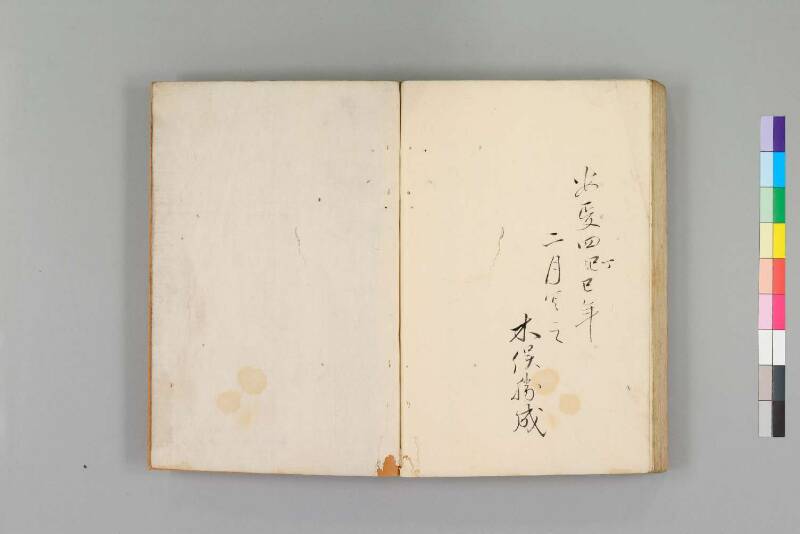 安政四丁巳年
二月写之
木俣勝成